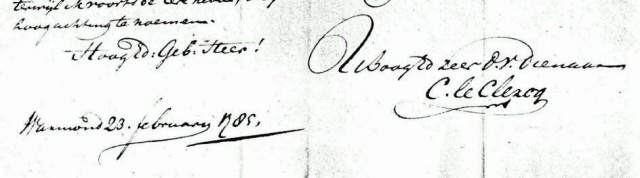 terwijl ik voorts de eer hebbe, my
hoogachting te noemen.
Hoog Ed: Geb: Heer!
UHoogEd zeer d.v. Dienaar
C. le Clercq
Warmond 23. february 1785.